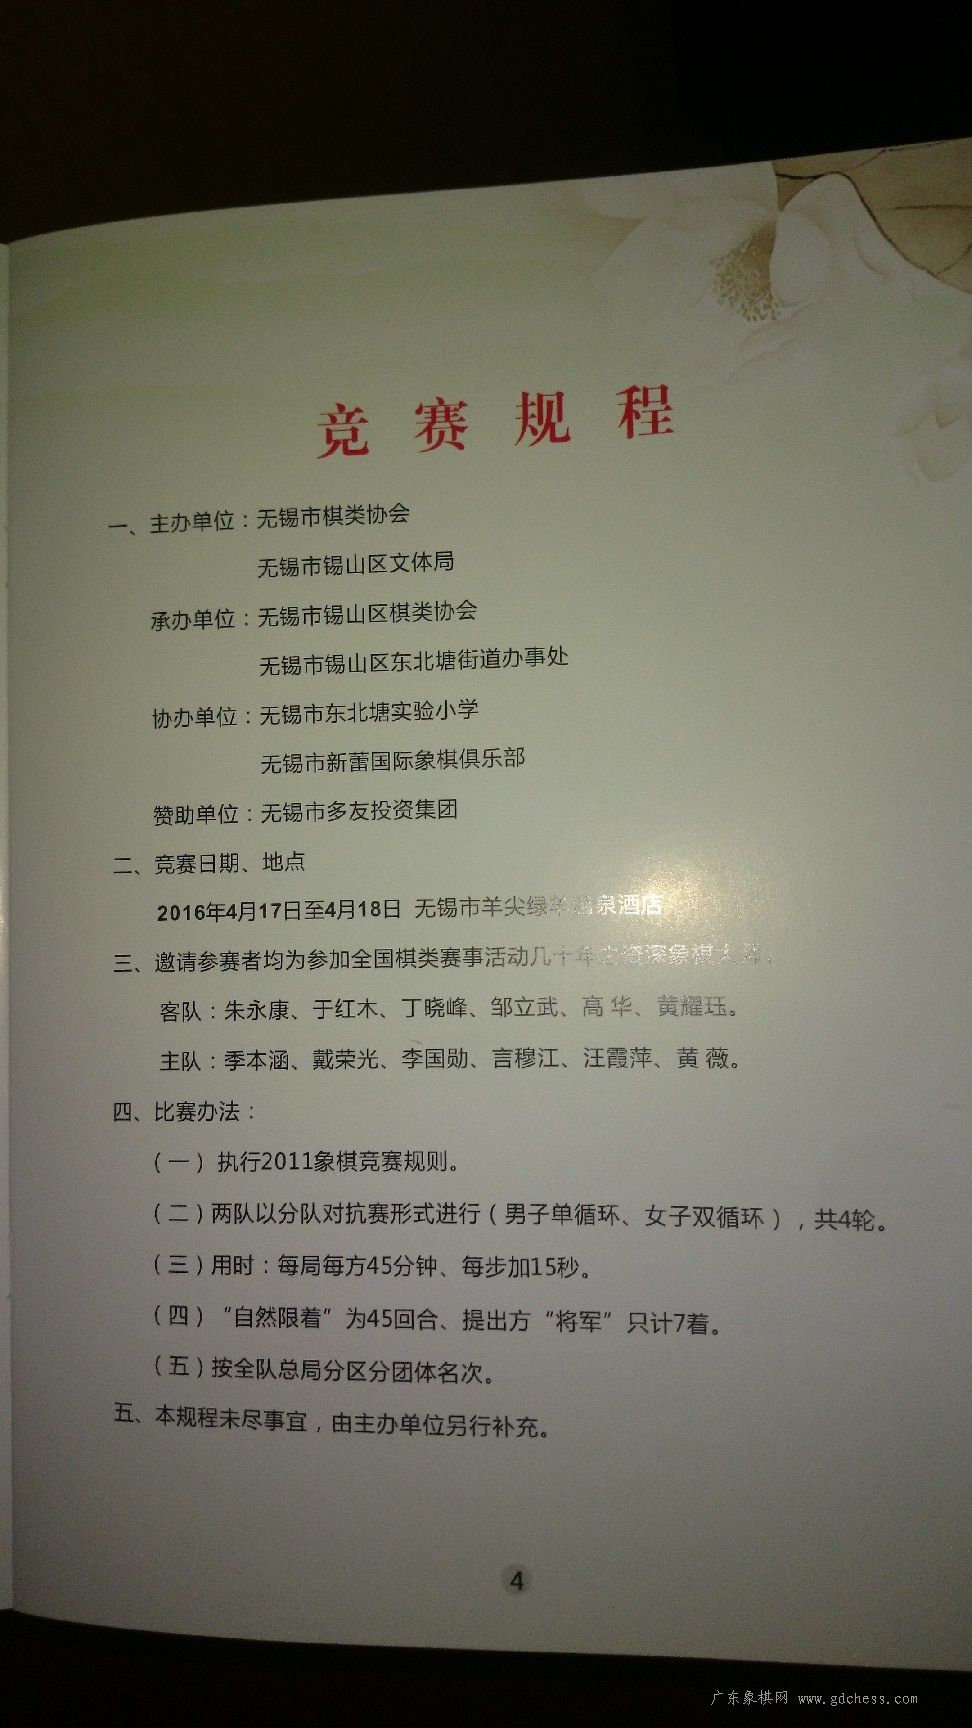 竞赛规程
一、主办单位：无锡市棋类协会
无锡市锡山区文体局
承办单位：无锡市锡山区棋类协会
无锡市锡山区东北塘街道办事处
协办单位：无锡市东北塘实验小学
无锡市新蕾国际象棋俱乐部
赞助单位：无锡市多友投资集团
二、竞赛日期、地点
2016年4月17日至4月18日 无锡市羊尖绿羊温泉酒店
三、邀请参赛者均为参加全国棋类赛事活动几十年之资深象棋大师。
客队：朱永康、于红木、丁晓峰、邹立武、高 华、黄耀珏。
主队：季本涵、戴荣光、李国勋、言穆江、汪霞萍、黄 薇。
四、比赛办法：
（一） 执行2011象棋竞赛规则。
（二）两队以分队对抗赛形式进行（男子单循环、女子双循环），共4轮。
（三）用时：每局每方45分钟、每步加15秒。
（四）“自然限着”为45回合、提出方“将军”只计7着。
（五）按全队总局分区分团体名次。
五、本规程未尽事宜，由主办单位另行补充。
4
广东象棋网 www.gdchess.com